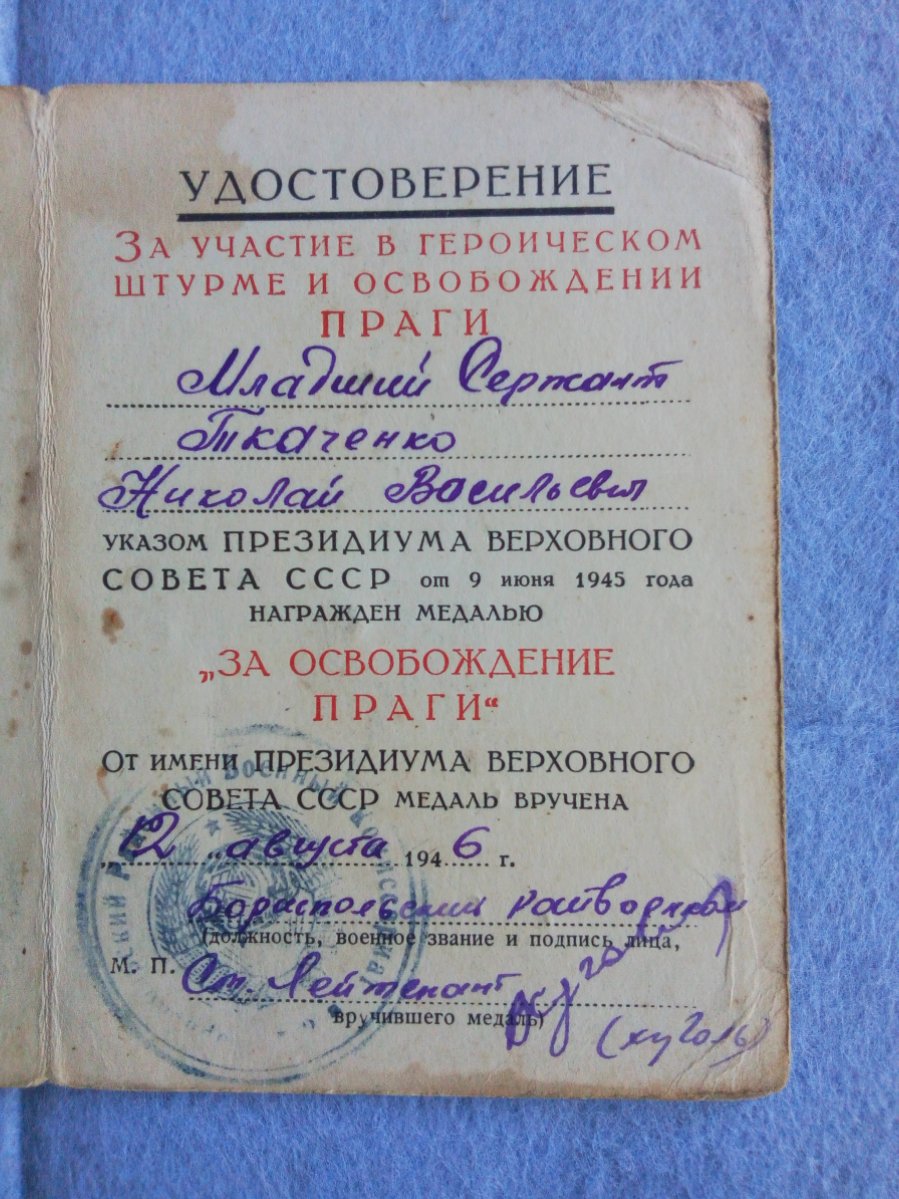 УДОСТОВЕРЕНИЕ
ЗА УЧАСТИЕ В ГЕРОИЧЕСКОМ
ШТУРМЕ И ОСВОБОЖДЕНИИ
ПРАГИ
Младший Сержант
Ткаченко
Николай Васильевич
УКАЗОМ ПРЕЗИДИУМА ВЕРХОВНОГО
СОВЕТА СССР от 9 июня 1945 года
НАГРАЖДЕН МЕДАЛЬЮ
„ЗА ОСВОБОЖДЕНИЕ
ПРАГИ“
ОТ ИМЕНИ ПРЕЗИДИУМА ВЕРХОВНОГО
СОВЕТА СССР МЕДАЛЬ ВРУЧЕНА
„12„ августа 1946 г.
Бориспольский райвоенком
(должность, военное звание и подпись лица,
М. П. Ст. Лейтенант
вручившего медаль)
(хуголь)
Районный Военный Комиссариат